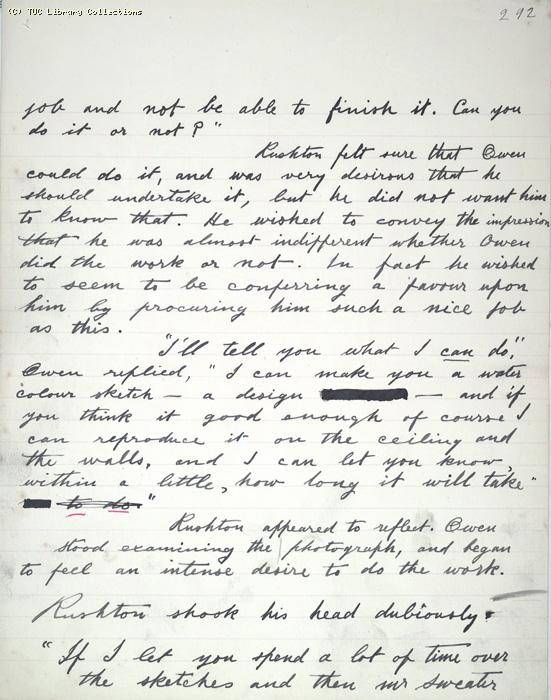 (C) TUC Library Collections
292
job and not be able to finish it. Can you
do it or not?"
Rushton felt sure that Owen
could do it, and was very desirous that he
should undertake it, but he did not want him
to know that. He wished to convey the impression
that he was almost indifferent whether Owen
did the work or not. In fact he wished
to seem to be conferring a favour upon
him by procuring him such a nice job
as this.
"I'll tell you what I can do",
Owen replied, "I can make you a water
colour sketch — a design — and if
you think it good enough of course I
can reproduce it on the ceiling and
the walls, and I can let you know,
within a little, how long it will take"
to do."
Rushton appeared to reflect. Owen
stood examining the photograph, and began
to feel an intense desire to do the work.
Rushton shook his head dubiously.
"If I let you spend a lot of time over
the sketches and then mr Sweater